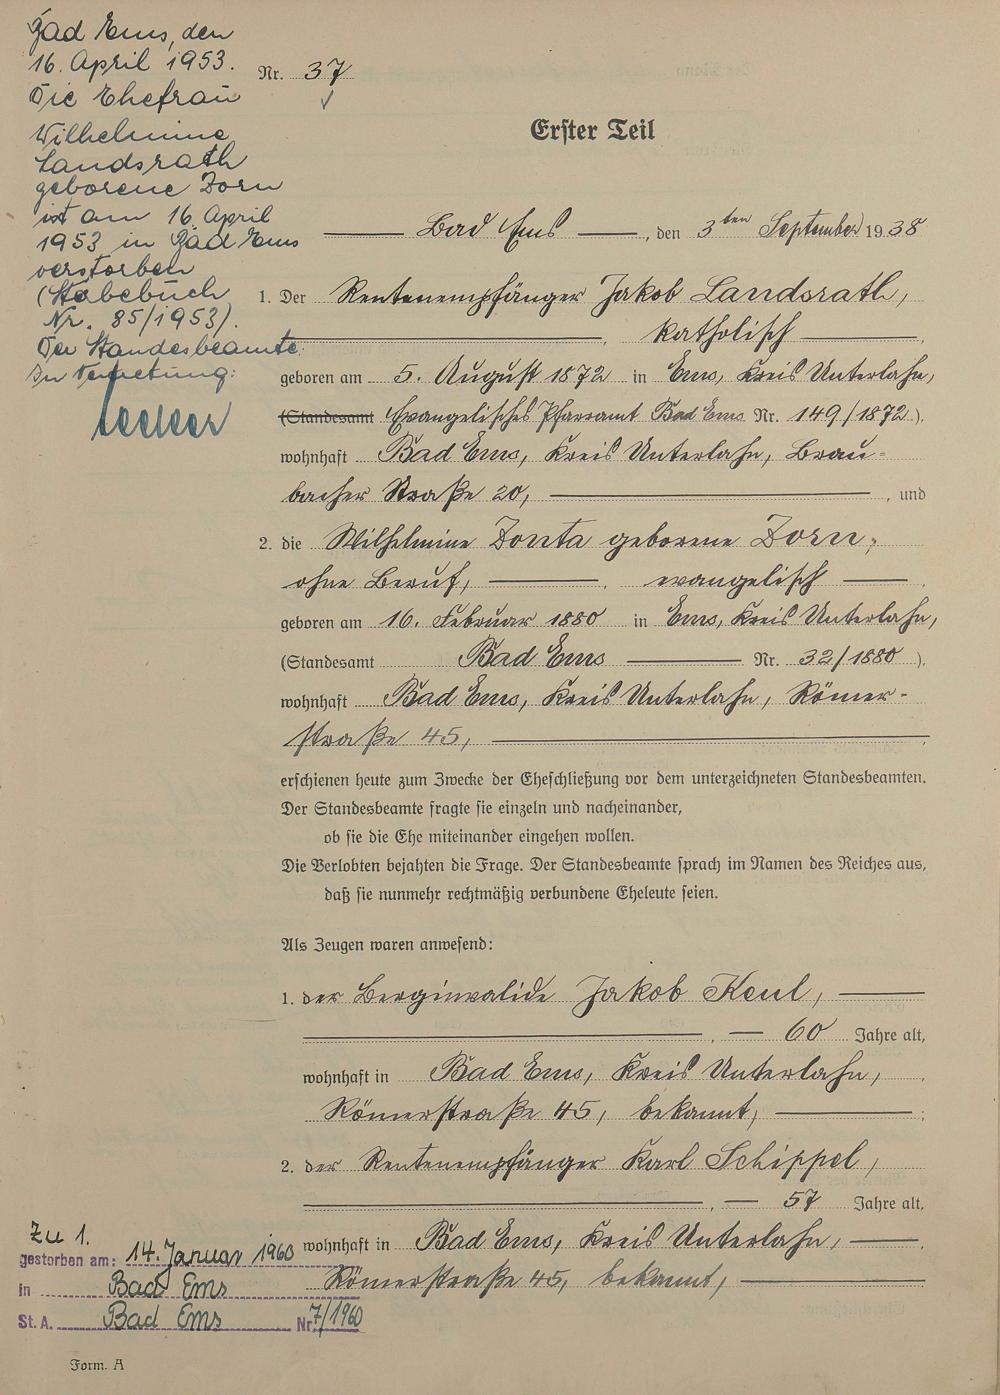 Bad Ems, den
16. April 1953.
Die Ehefrau
Wilhelmine
Landsrath
geborene Zorn
ist am 16. April
1953 in Bad Ems
verstorben
(Stebebuch
Nr. 85/1953).
Der Standesbeamte
In Vertretung:
Nr. 37
Erster Teil
Bad Ems, den 3ten September 1938
1. Der Rentenempfänger Jakob Landsrath,
katholisch
geboren am 5. August 1872 in Ems, Kreis Unterlahn,
(Standesamt Evangelisches Pfarramt Bad Ems Nr. 149/1872).
wohnhaft Bad Ems, Kreis Unterlahn, Brau-
bacher Straße 20, und
2. die Wilhelmine Zonta geborene Zorn,
ohne Beruf, evangelisch
geboren am 16. Februar 1880 in Ems, Kreis Unterlahn,
(Standesamt Bad Ems Nr. 32/1880).
wohnhaft Bad Ems, Kreis Unterlahn, Römer-
straße 45,
erschienen heute zum Zwecke der Eheschließung vor dem unterzeichneten Standesbeamten.
Der Standesbeamte fragte sie einzeln und nacheinander,
ob sie die Ehe miteinander eingehen wollen.
Die Verlobten bejahten die Frage. Der Standesbeamte sprach im Namen des Reiches aus,
daß sie nunmehr rechtmäßig verbundene Eheleute seien.
Als Zeugen waren anwesend:
1. der Berginvalide Jakob Keul,
60 Jahre alt,
wohnhaft in Bad Ems, Kreis Unterlahn,
Römerstraße 45, bekannt,
2. der Rentenempfänger Karl Schippel,
57 Jahre alt,
wohnhaft in Bad Ems, Kreis Unterlahn,
Römerstraße 45, bekannt,
Zu 1.
gestorben am: 14. Januar 1960
in Bad Ems
St. A. Bad Ems Nr. 7/1960
Form. A